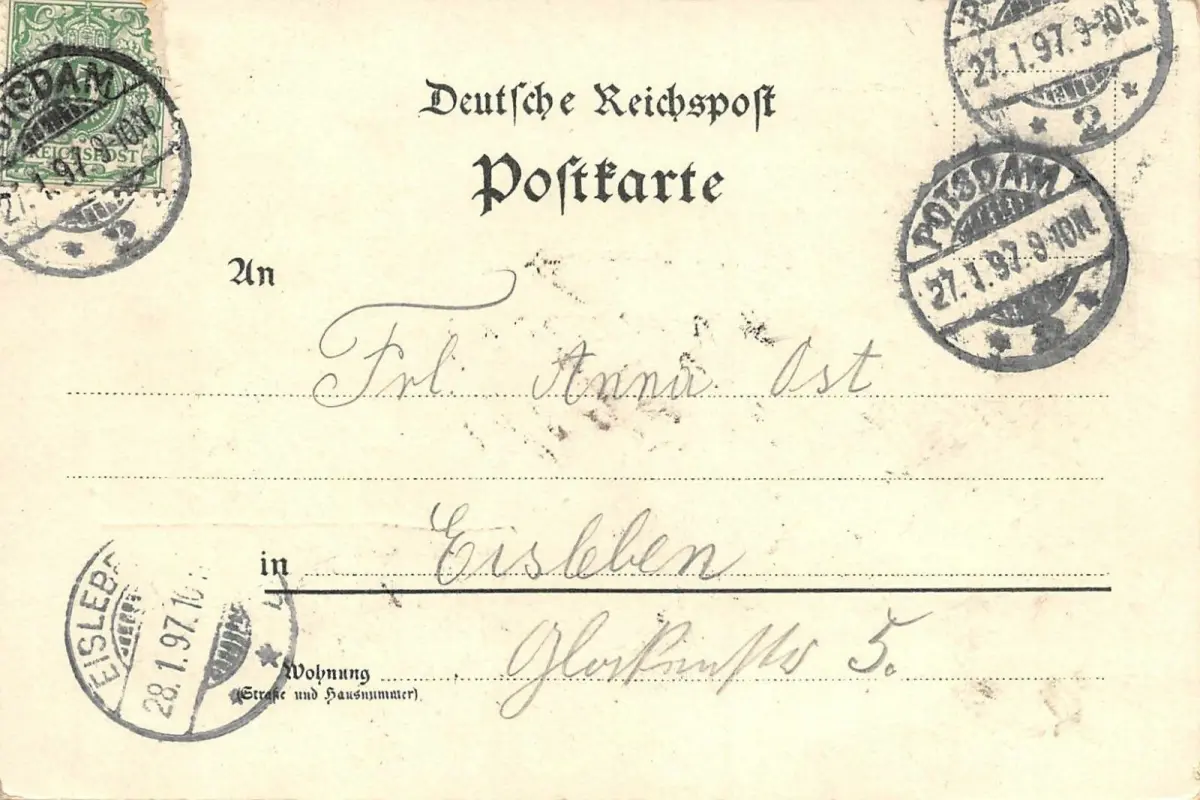 REICHSPOST
POTSDAM
27.1.97.9-10N.
2
27.1.97.9-10N.
2
Deutsche Reichspost
Postkarte
POTSDAM
27.1.97.9-10N.
2
An
Frl. Anna Ost
in Eisleben
EISLEBE
28.1.97.10
Wohnung Glockenstr 5.
(Straße und Hausnummer).